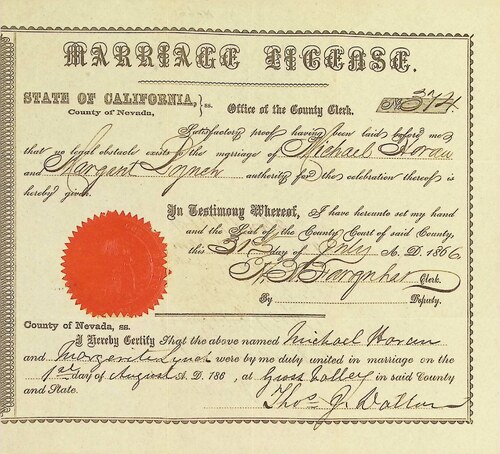 MARRIAGE LICENSE.
STATE OF CALIFORNIA, } ss. Office of the County Clerk. No. 374.
County of Nevada,
Satisfactory proof having been laid before me
that no legal obstacle exists to the marriage of Michael Horan
and Margaret Lynch authority for the celebration thereof is
hereby given.
In Testimony Whereof, I have hereunto set my hand
and the Seal of the County Court of said County,
this 31st day of July A. D. 1866
Clerk.
By Deputy.
County of Nevada, ss.
I Hereby Certify That the above named Michael Horan
and Lynch were by me duly united in marriage on the
1st day of August A. D. 186 , at Grass Valley in said County
and State.
Thos J. Dalton